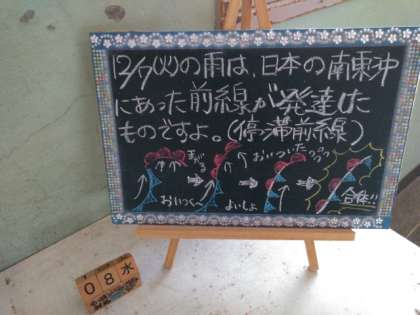 12/7(火)の雨は、日本の南東沖
にあった前線が発達した
ものですよ。(停滞前線)
おいついた
おいつくへ
よいしょ
合体!!
08水